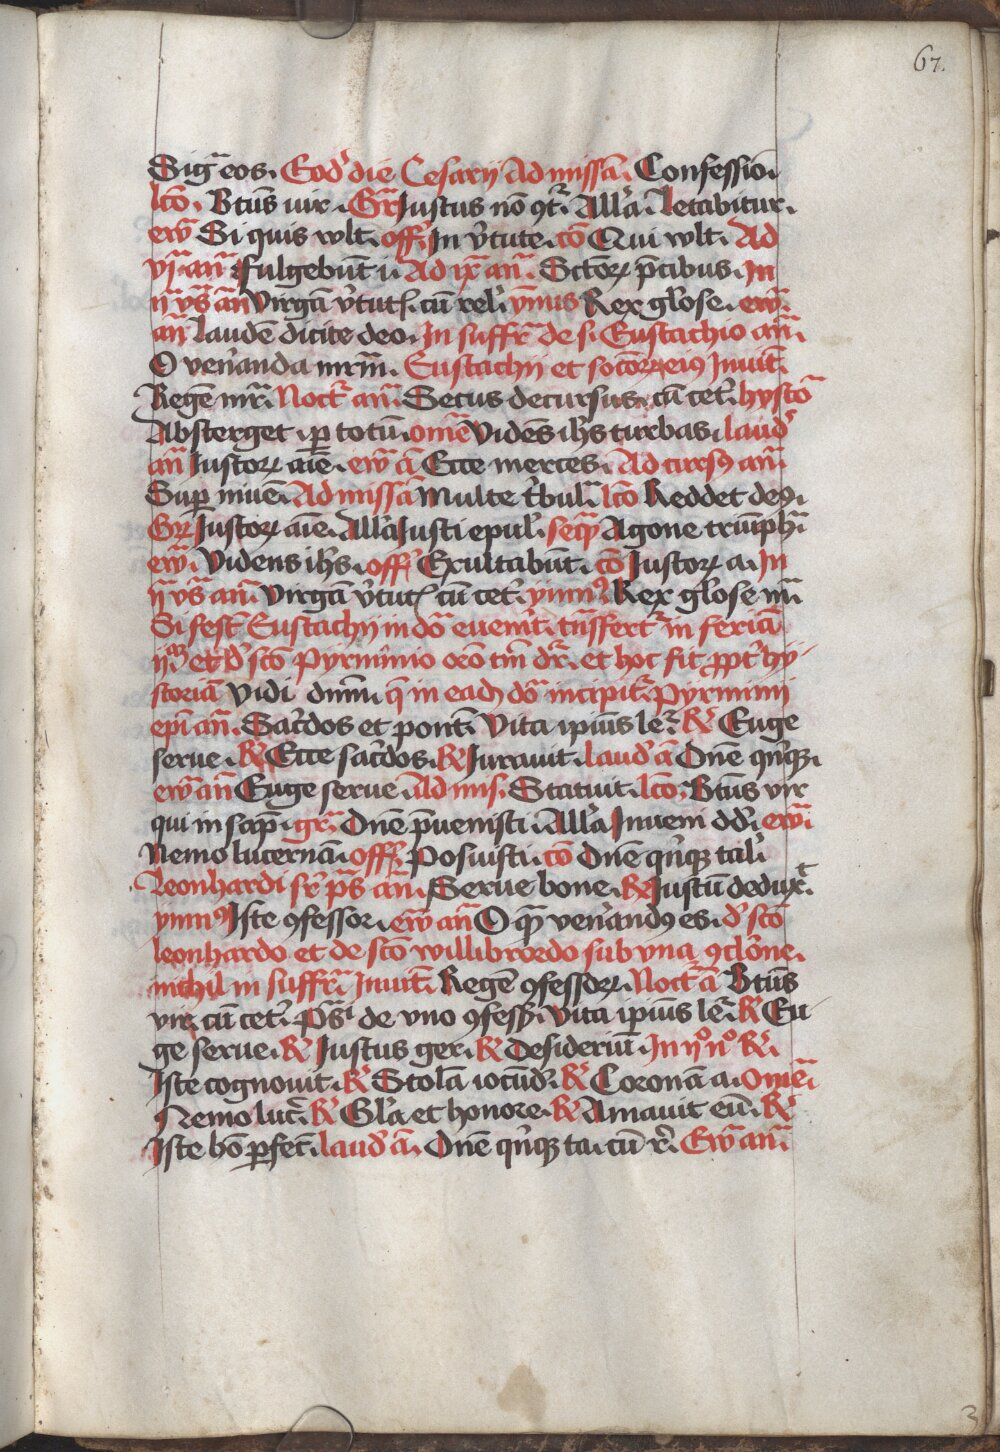 67.
Sig̃ eos. Eod' die Cesarij Ad missā. Confessio.
lc̄o. Bt̄us uir. Gr̄ Justus nō ꝯt'. All'a. Letabitur.
ew̄ Si quis vult. off. In v̓tute. cō Qui vult. Ad
vj. an̄. Fulgebūt iu. Ad ix. an̄. Sctōꝝ p̄cibus. In
ij vs̄ an̄ Virgā v̓tut. cū rel'. ymnus Rex gl'ose. ew̄.
an̄ Laudē dicite deo. In suffr̄. de s. Eustachio an̄.
O ven̓anda mr̄m. Eustachij et socioꝝ eiꝰ Inuit̄.
Regē mr̄. Noct'. an̄. Secus decursus. cū cet'. hystō
Absterget. ꝑ totū. omē Videns ih̄s turbas. laud'
an̄ Justoꝝ aīe. ew̄ ā Ecce merces. Ad cursꝰ an̄.
Suꝑ niuē. Ad missā Multe t̓bul'. lc̄o Reddet deꝰ.
Gr̄ Justoꝝ aīe. All'a Justi epul'. seqͣ Agone triūphā
ew̄. Videns ih̄s. off. Exultabūt. cō Justoꝝ a. In
ij vs̄ an̄. Virgā v̓tut. cū cet'. ymnꝰ Rex gl'ose m̄.
Si fest̄ Eustachij in dō euen̓it. trāsfert' in feriā
ijᵃᵐ et d' scō Pyrminio oro tm̄ dr̄. et hoc fit ꝓpt' hy
storiā Vidi dn̄m. q̄ in eadē dō incipit'. Pyrminij
ep̄i an̄. Sac̓dos et pont. Vita ipius le. ℟ Euge
serue. ℟ Ecce sac̓dos. ℟ Jurauit. laud' ā Dn̄e qn̓qꝫ.
ew̄ an̄ Euge serue. Ad mis. Statuit. lc̄o. Bt̄us vir
qui in sap̄. gr̄. Dn̄e p̄uenisti. All'a Inueni dd'. ew̄.
Nemo lucernā. off. Posuisti. cō Dn̄e qn̓qꝫ tal'.
Leonhardi fr̄ p̄s an̄. Serue bone. ℟ Justū deduxᵗ.
ymnꝰ Iste ꝯfessor. ew̄ an̄ O qͣ ven̓andꝰ es. d' scō
leonhardo et de scō willibrordo sub vna ꝯcl'one.
nichil in suffr̄. Inuit̄. Regē ꝯfessoꝝ. Noct' ā Bt̄us
vir. cū cet'. Ps̄ de vno ꝯfess. Vita ipius le. ℟ Eu
ge serue. ℟ Justus ger. ℟ Desideriū. In ijº nº ℟.
Iste cognouit. ℟ Stolā iocūd'. ℟ Coronā a. Omē.
Nemo luc̄. ℟ Gl'a et honore. ℟ Amauit eū. ℟
Iste hō ꝑfec̄. laud' ā. Dn̄e qn̓qꝫ ta. cū r̄. Ew̄ an̄.
3